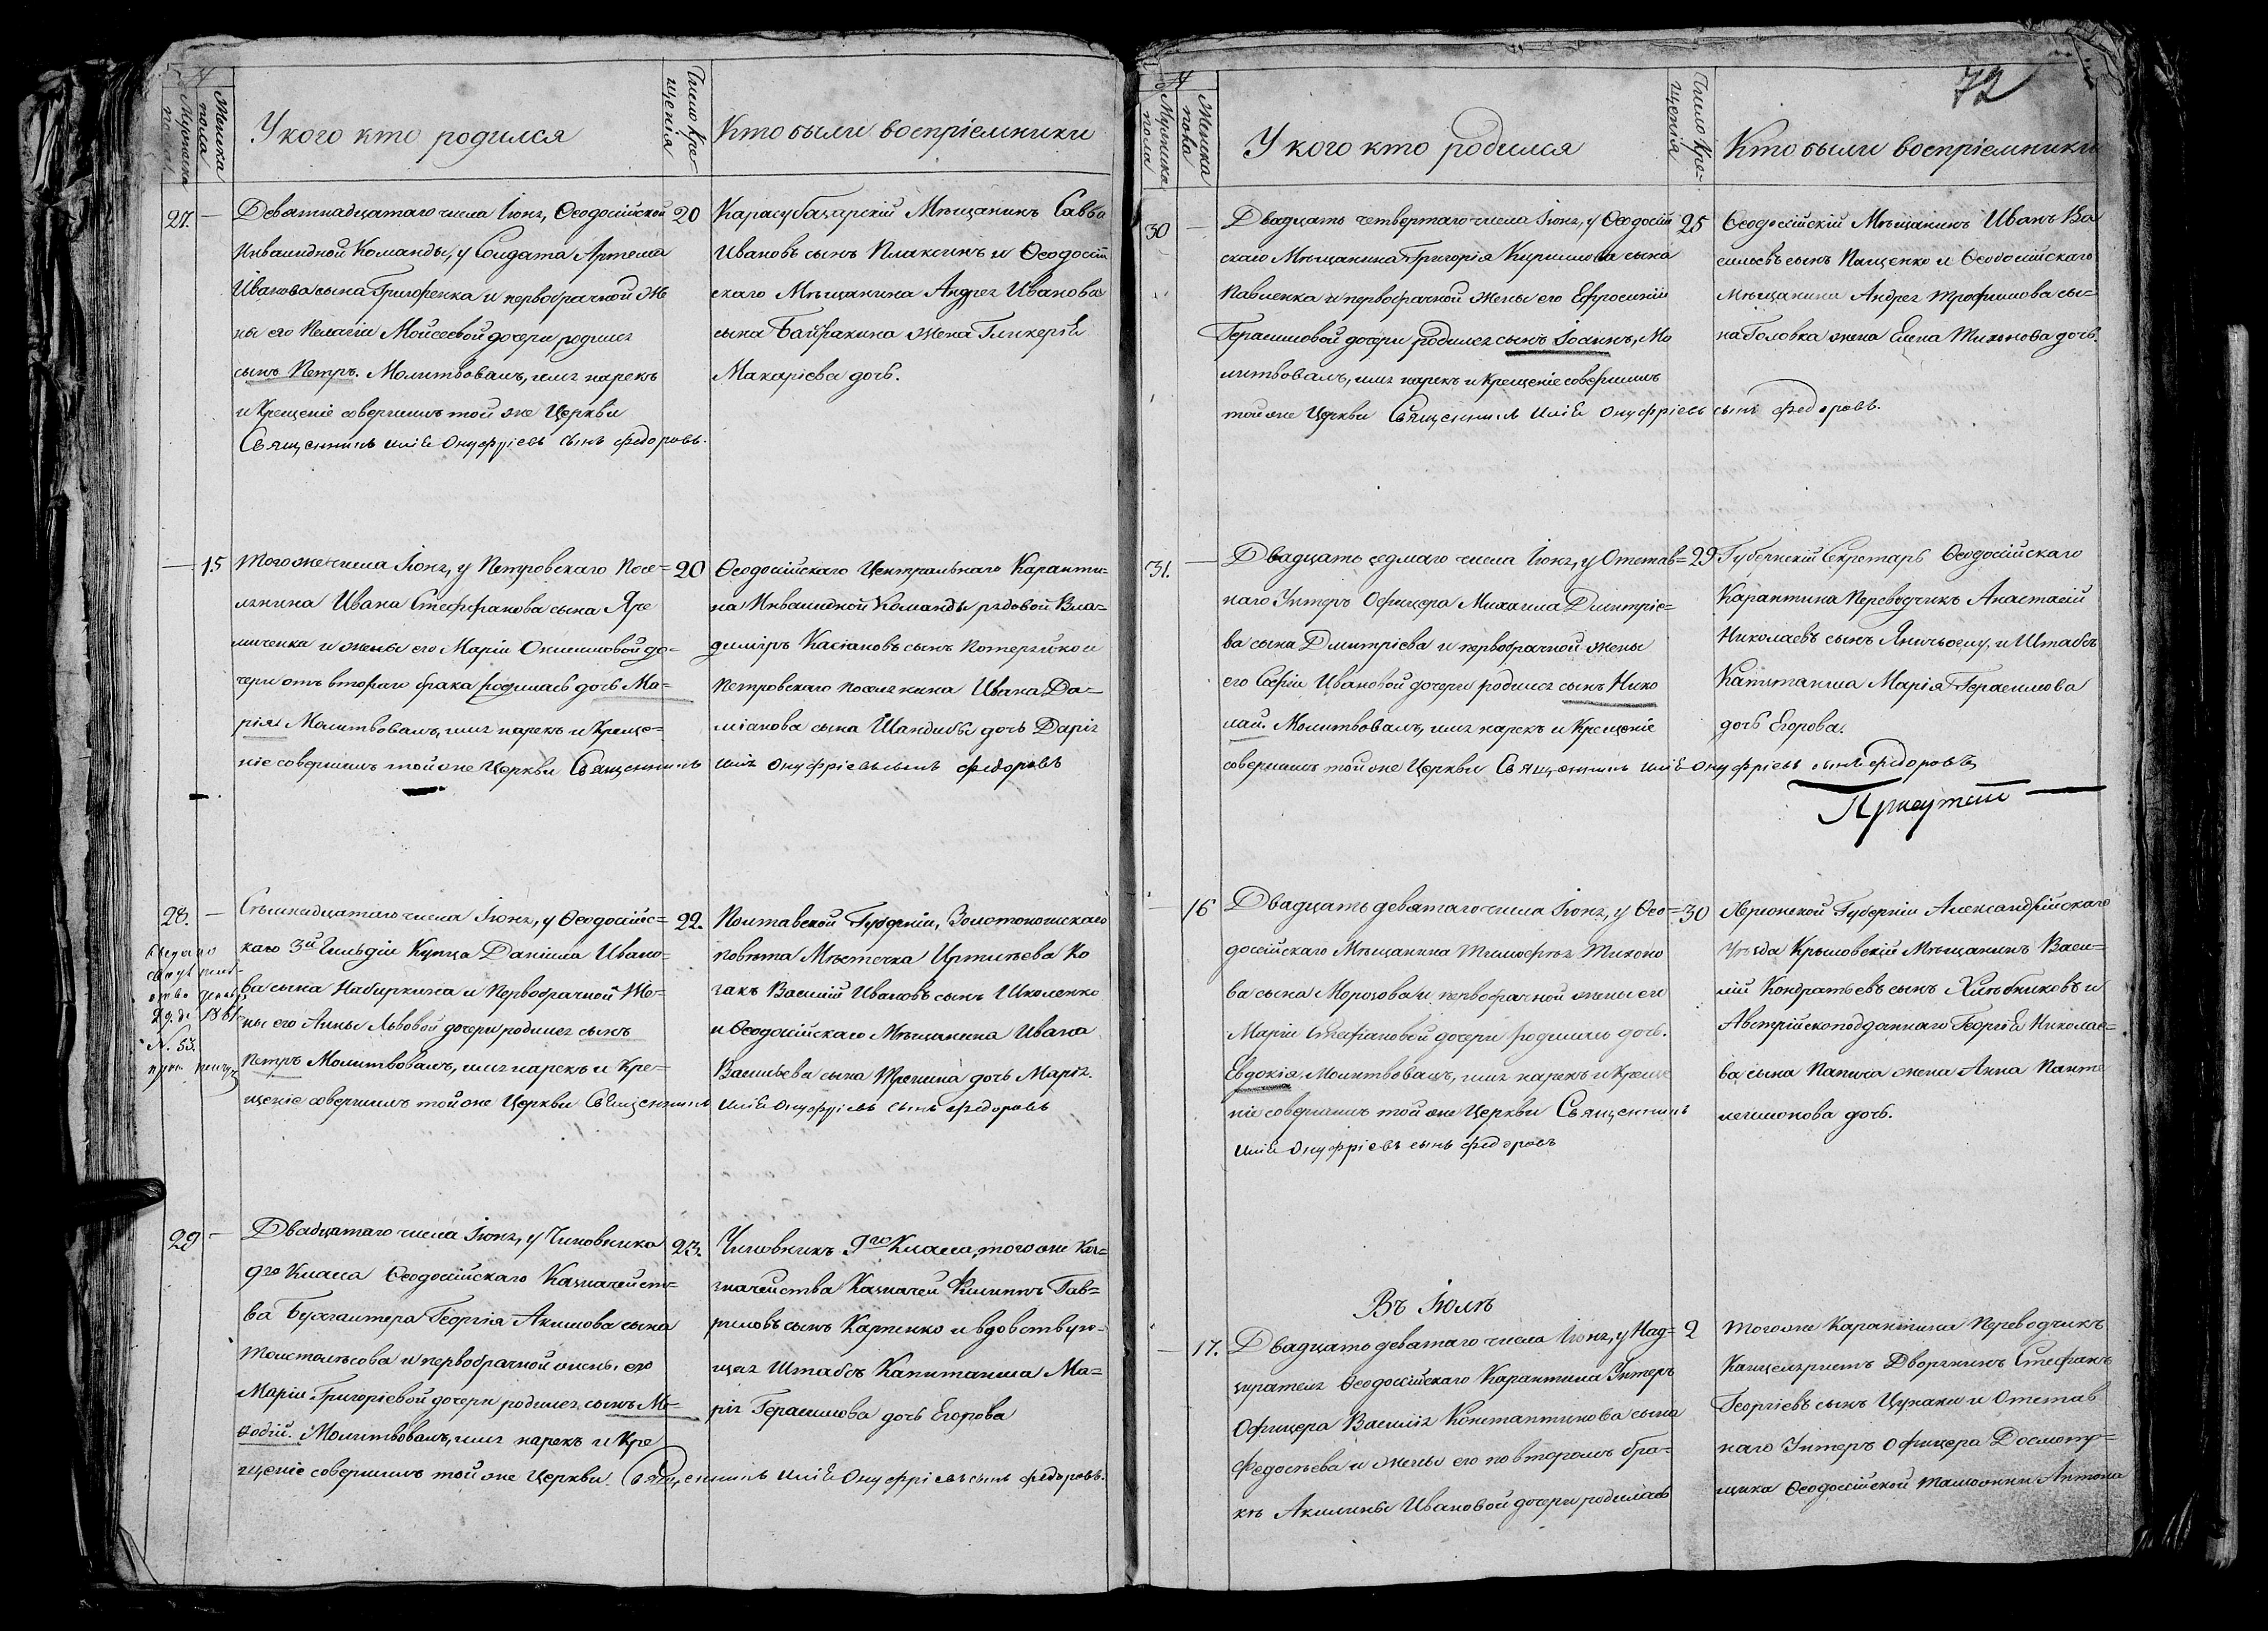 №
Мужеска пола
Женска пола
У кого кто родился
Число кре-
щенія
Кто были воспріемники
27.
Девятнадцатаго числа Іюня, Ѳеодосійской
Инвалидной Команды, у Солдата Артема
Иванова сына Григоренка и первобрачной же
ны его Пелагіи Мойсеевой дочери родился
сынъ Петръ. Молитвовалъ, имя нарекъ
и Крещеніе совершилъ той же Церкви
Священникъ Илія Онуфріевъ сынъ Федоровъ.
20
Карасубазарскій Мѣщанинъ Савва
Ивановъ сынъ Плаксинъ и Ѳеодосій
скаго Мѣщанина Андрея Иванова
сына Байракина жена Гликерія
Макаріева дочь.
15
Того же числа Іюня, у Петровскаго Посе=
лянина Ивана Стеффанова сына Яре
мъченка и жены его Маріи Онисимовой до=
чери отъ втораго брака родилась дочь Ма=
рія. Молитвовалъ, имя нарекъ и Креще=
ніе совершилъ той же Церкви Священникъ Илія Онуфріевъ сынъ Федоровъ
20
Ѳеодосійскаго Центральнаго Каранти=
на Инвалидной Команды рядовой Вла=
диміръ Касіановъ сынъ Потеряйко и
Петровскаго поселянина Ивана Да=
міанова сына Шандыбы дочь Дарія
28.
N. 53.
Сѣмнадцатаго числа Іюня, у Ѳеодосійс=
каго 3й Гильдіи Купца Даніила Ивано=
ва сына Набиркина и Первобрачной Же=
ны его Анны Львовой дочери родился сынъ
Петръ Молитвовалъ, имя нарекъ и Кре=
щеніе совершилъ той же Церкви Священникъ Илія Онуфріевъ сынъ Федоровъ
22.
Полтавской Губерніи, Золотоношскаго
повѣта Мѣстечка Ирклѣева Ко
закъ Василій Ивановъ сынъ Школенко
и Ѳеодосійскаго Мѣщанина Ивана
Васильева сына Тренина дочь Марія.
29
Двадцатаго числа Іюня, у Чиновника
9го Класса Ѳеодосійскаго Казначейст=
ва Бухгалтера Георгія Акимова сына
Толстолѣсова и первобрачной жены его
Маріи Григоріевой дочери родился сынъ Ме=
ѳодій. Молитвовалъ, имя нарекъ и Кре
щеніе совершилъ той же Церкви Священникъ Илія Онуфріевъ сынъ Федоровъ.
23.
Чиновникъ 9го Класса, того же Ка=
значейства Казначей Филиппъ Гав=
риловъ сынъ Карпенко и вдовствую=
щая Штабсъ Капитанша Ма=
рія Герасимова дочь Егорова
72
№
Мужеска пола
Женска пола
У кого кто родился
Число кре-
щенія
Кто были воспріемники
30
Двадцать четвертаго числа Іюня, у Ѳеодосій
скаго Мѣщанина Григорія Кирилова сына
Павленка и первобрачной жены его Ефросиніи
Герасимовой дочери родился сынъ Іоаннъ, Мо
литвовалъ, имя нарекъ и Крещеніе совершилъ
той же Церкви Священникъ Илія Онуфріевъ сынъ Федоровъ.
25
Ѳеодосійскій Мѣщанинъ Иванъ Ва
сильевъ сынъ Пащенко и Ѳеодосійскаго
Мѣщанина Андрея Трофимова сы=
на Головка жена Елена Тихонова дочь.
31.
Двадцать седмаго числа Іюня, у Отстав=
наго Унтеръ Офицера Михаила Дмитріе=
ва сына Дмитріева и первобрачной жены
его Софіи Ивановой дочери родился сынъ Нико
лай. Молитвовалъ, имя нарекъ и Крещеніе
совершилъ той же Церкви Священникъ Илія Онуфріевъ сынъ Федоровъ
29
Губернскій Секретарь Ѳеодосійскаго
Карантина Переводчикъ Анастасій
Николаевъ сынъ Яничьоглу, и Штабсъ
Капитанша Марія Герасимова
дочь Егорова.
16
Двадцать девятаго числа Іюня, у Ѳео=
досійскаго Мѣщанина Тимофѣя Тихоно
ва сына Морозова и первобрачной жены его
Маріи Стефановой дочери родилась дочь
Евдокія. Молитвовалъ, имя нарекъ и Креще
ніе совершилъ той же Церкви Священникъ
Илія Онуфріевъ сынъ Федоровъ
30
Херсонской Губерніи Александрійскаго
Уѣзда Крыловскій Мѣщанинъ Васи=
лій Кондратьевъ сынъ Хлѣбниковъ и
Австрійскоподданнаго Георгія Николае=
ва сына Папича жена Анна Панте
леимонова дочь.
Въ Іюлѣ
17.
Двадцать девятаго числа Іюня, у Над=
зирателя Ѳеодосійскаго Карантина Унтеръ
Офицера Василія Константинова сына
Федосѣева и жены его по второмъ бра=
кѣ Акилины Ивановой дочери родилась
2
Того же Карантина Переводчикъ
Канцеляристъ Дворянинъ Стефанъ
Георгіевъ сынъ Цунаки и Отстав
наго Унтеръ Офицера Досмотр=
щика Ѳеодосійской Таможни Антона